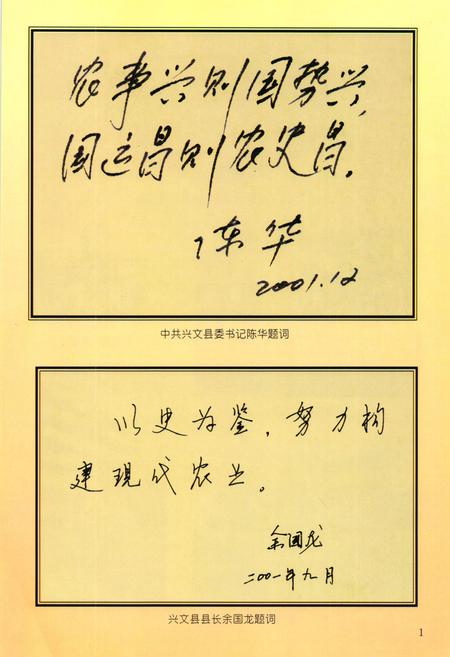 农事兴则国势兴,
国运昌则农史昌。
陈华
2001.12
中共兴文县委书记陈华题词
以史为鉴，努力构
建现代农业。
余国龙
二〇〇一年九月
兴文县县长余国龙题词
1